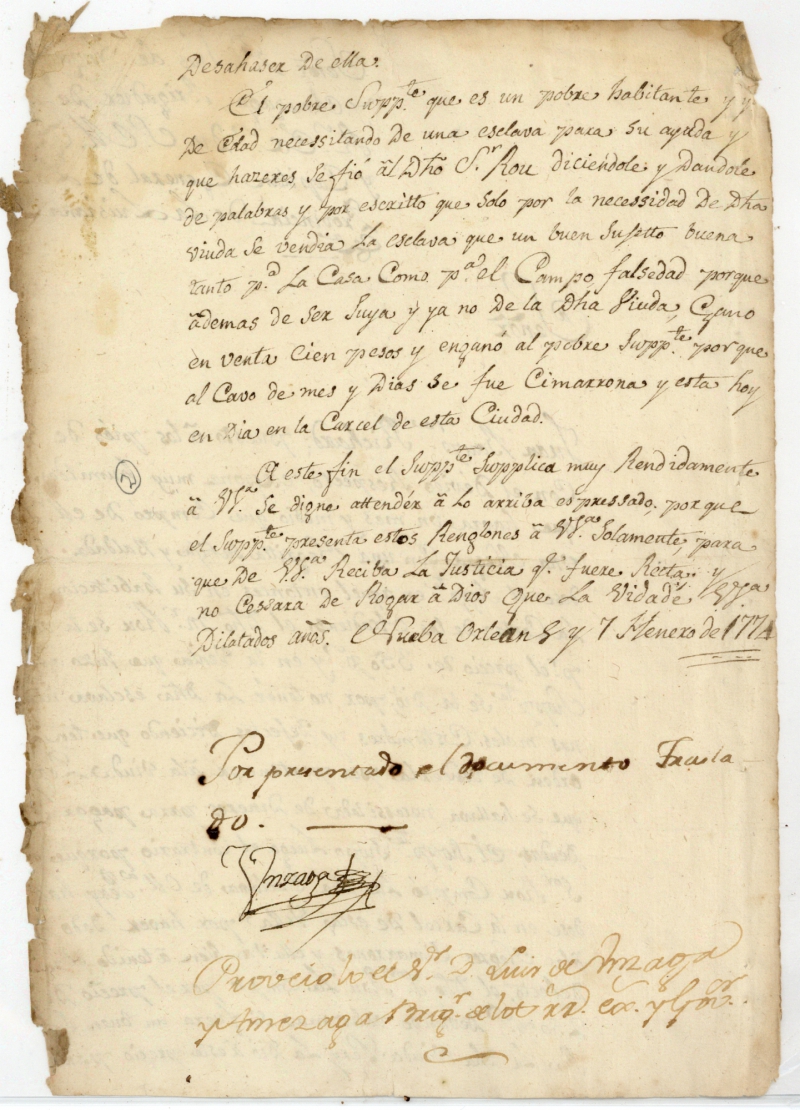 Desahaser De ella.
El pobre Suppte que es un pobre habitante y
De Edad necessitando De una esclava para su ayuda y
que hazeres se fió al Dho Sr Rou diciendole y Dandole
de palabras y por escritto que solo por la necessidad De Dha
viuda se vendia La esclava que un buen Sujetto buena
tanto pa La Casa Como pa el Campo falsedad porque
ademas de ser Suya y ya no de la Dha Viuda, Gano
en venta Cien pesos y enganó al pobre Suppte porque
al Cavo de mes y Dias se fue Cimarrona y esta hoy
en Dia en la Carcel de esta Ciudad.
2
A este fin el Suppte Supplica muy Rendidamente
a VSa Se digne attendér a Lo arriba espressado, porque
el Suppte presenta estos Renglones a VSa Solamente, para
que De VSa Reciba La Justicia q. fuere Recta y
no Cessara de Rogar a Dios Que La Vida de VSa
Dilatados años. Nueba Orleans y 7 Henero de 1774
Por presentado el documento Trasla-
do.
Vnzaga
Proveiolo el Sr D. Luis de Vnzaga
y Amezaga Brigr de los Rs. Exs. y Gor.